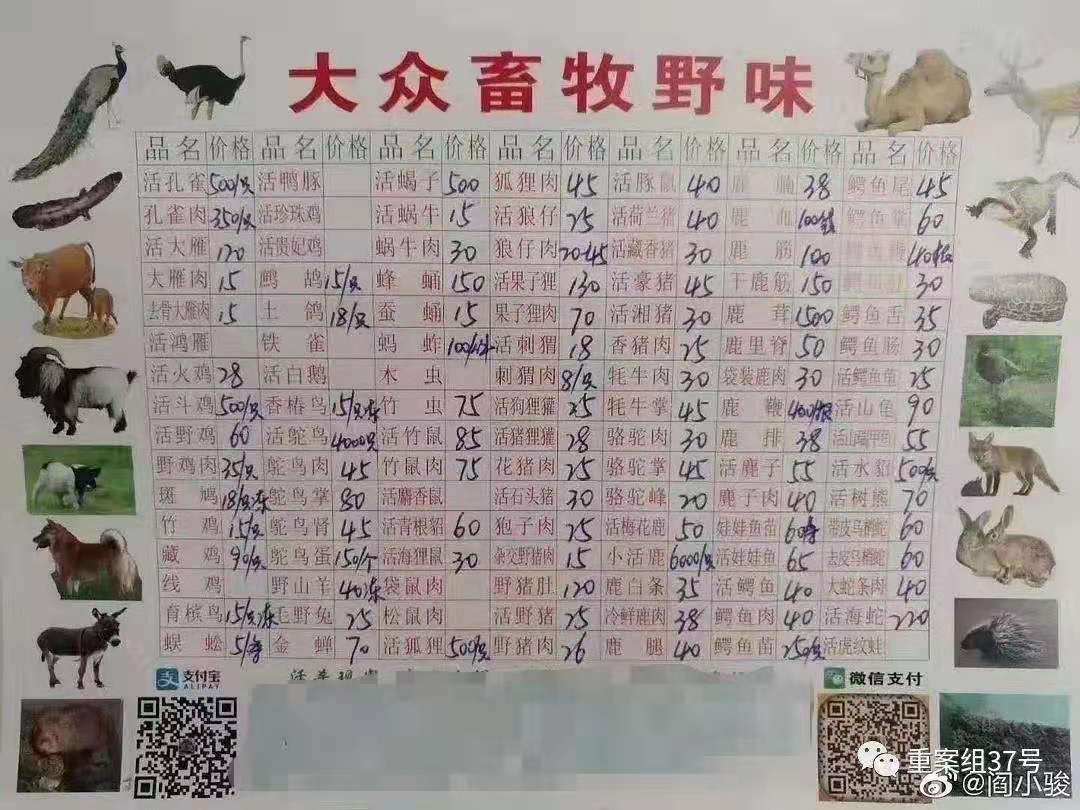 大众畜牧野味
品名 价格 品名 价格 品名 价格 品名 价格 品名 价格 品名 价格 品名 价格
活孔雀 500/只 活鸭豚 活蝎子 500 狐狸肉 45 活豚鼠 40 38 鳄鱼尾 45
孔雀肉 350/只 活珍珠鸡 活蜗牛 15 活狼仔 25 活荷兰猪 40 鹿血 鳄鱼掌 60
活大雁 120 活贵妃鸡 蜗牛肉 30 狼仔肉 20-45 活藏香猪 30 鹿筋 100
大雁肉 15 鹧鸪 15/只 蜂蛹 150 活果子狸 130 活豪猪 45 干鹿筋 150 30
去骨大雁肉 15 土鸽 18/只 蚕蛹 15 果子狸肉 70 活湘猪 30 鹿茸 1500 鳄鱼舌 35
活鸿雁 铁雀 蚂蚱 活刺猬 18 香猪肉 25 鹿里脊 50 鳄鱼肠 30
活火鸡 28 活白鹅 木虫 刺猬肉 8/只 牦牛肉 30 袋装鹿肉 30 25
活斗鸡 500/只 香椿鸟 15/只冻 竹虫 75 活狗狸獾 25 牦牛掌 45 鹿鞭 活山龟 90
活野鸡 60 活鸵鸟 4000只 活竹鼠 85 活猪狸獾 28 骆驼肉 30 鹿排 38 55
野鸡肉 35/只 鸵鸟肉 45 竹鼠肉 75 花猪肉 25 骆驼掌 45 活麂子 55 活水貂 500/只
斑鸠 18/只冻 鸵鸟掌 80 活麝香鼠 活石头猪 30 骆驼峰 20 麂子肉 40 活树熊 70
竹鸡 15/只 鸵鸟肾 45 活青根貂 60 狍子肉 25 活梅花鹿 50 娃娃鱼苗 60 带皮乌梢蛇 60
藏鸡 90/只 鸵鸟蛋 150/个 活海狸鼠 30 杂交野猪肉 15 小活鹿 6000/只 活娃娃鱼 65 去皮乌梢蛇 60
线鸡 野山羊 40冻 袋鼠肉 野猪肚 120 鹿白条 35 活鳄鱼 40 大蛇条肉 40
育槟鸟 15/只冻 毛野兔 25 松鼠肉 活野猪 25 冷鲜鹿肉 38 鳄鱼肉 40 活海蛇 220
蜈蚣 5/条 金蝉 70 活狐狸 500/只 野猪肉 26 鹿腿 40 鳄鱼苗 250/只 活虎纹蛙
支付宝
ALIPAY
微信支付
重案组37号
@阎小骏